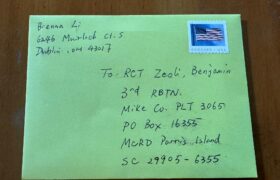 Brenna Li
6246 Murloch Ct. S
Dublin, OH 43017
To: RCT Zeoli, Benjamin
3rd RBTN.
Mike Co. PLT 3065
PO Box 16355
MCRD Parris Island
SC 29905-6355